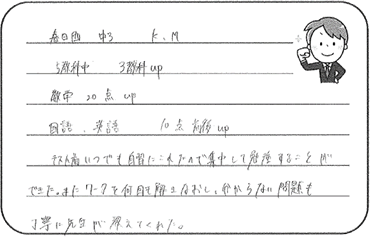 春日西 中3 K.M
5教科中 3教科up
数学 20点 up
国語、英語 10点前後up
テスト前いつでも自習にこれたので集中して勉強することが
できた。またワークを何回も解きなおし、分からない問題も
丁寧に先生が教えてくれた。